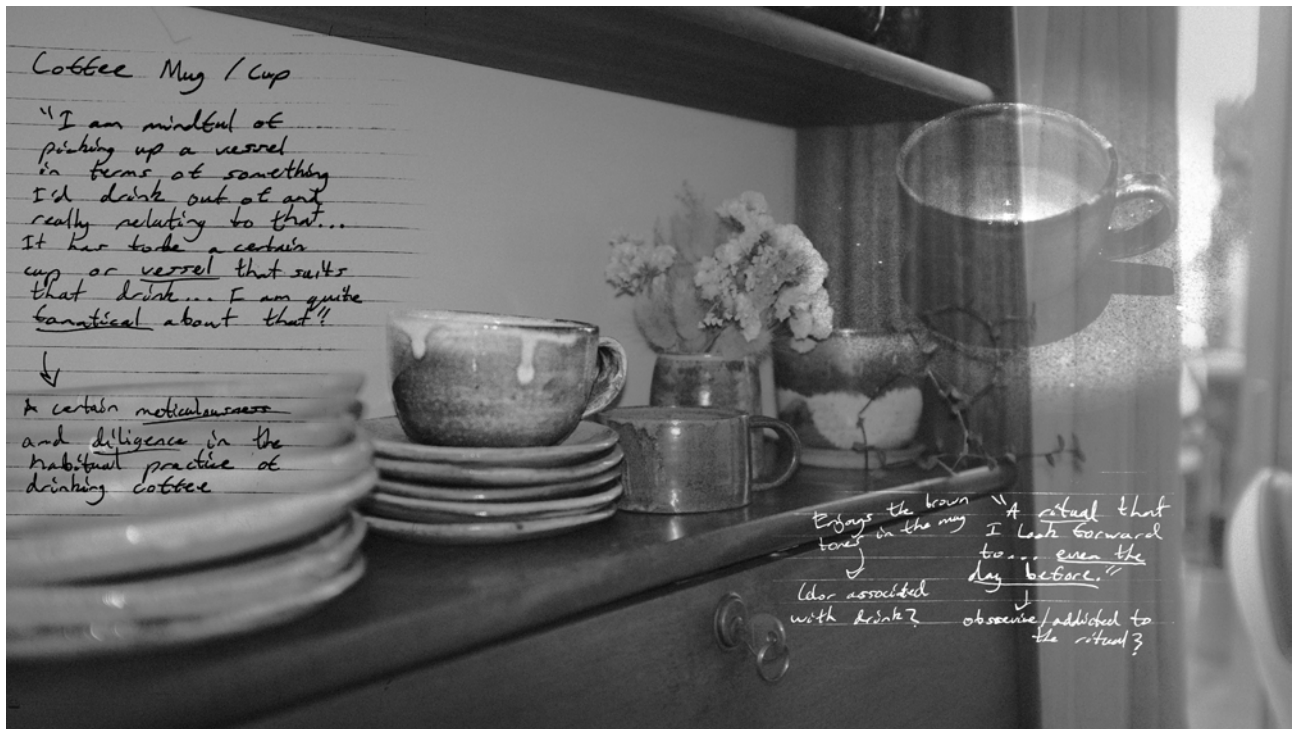 Coffee Mug / Cup
"I am mindful of
picking up a vessel
in terms of something
I'd drink out of and
really relating to that...
It has to be a certain
cup or vessel that suits
that drink... I am quite
fanatical about that"!
A certain meticulousness
and diligence in the
habitual practice of
drinking coffee
Enjoys the brown
tones in the mug
Color associated
with drink?
"A ritual that
I look forward
to... even the
day before."
obsessive/addicted to
the ritual?